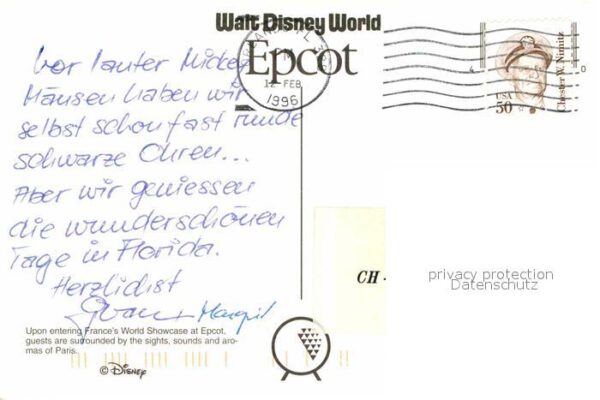 Walt Disney World
Epcot
12 FEB
1996
USA
50
Chester W. Nimitz
Vor lauter Mickey
Mäusen haben wir
selbst schon fast runde
schwarze Ohren...
Aber wir geniessen
die wunderschönen
Tage in Florida.
Herzlichst
Margrit
CH -
privacy protection
Datenschutz
Upon entering France's World Showcase at Epcot,
guests are surrounded by the sights, sounds and aro-
mas of Paris.
© Disney